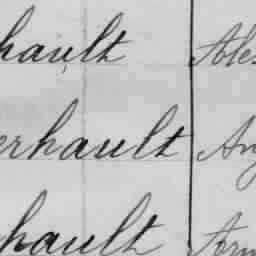 hault Ales
erhault An
hault Arm